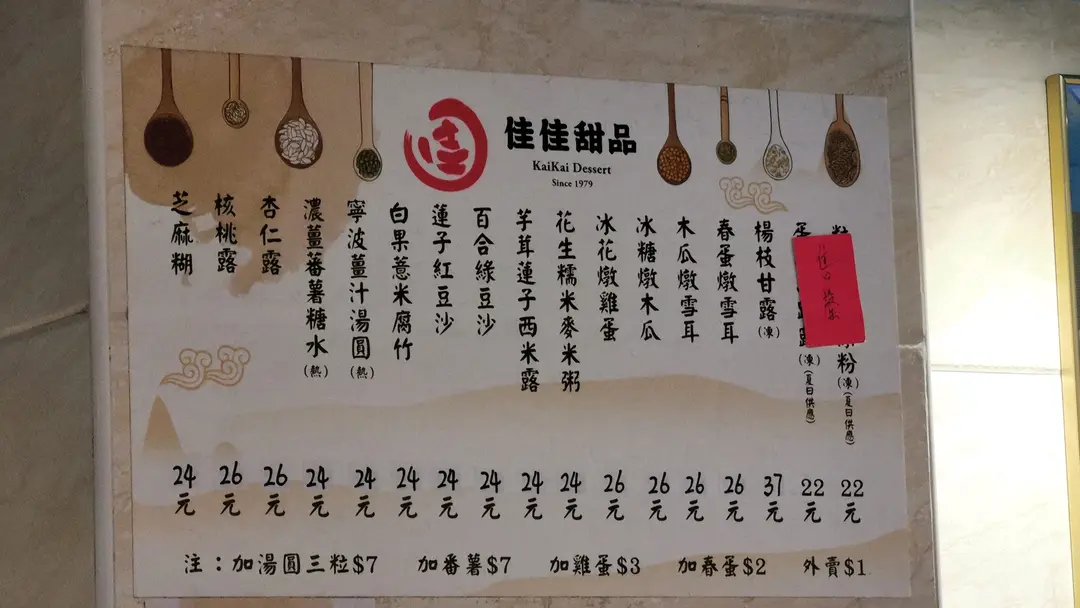 佳佳甜品
KaiKai Dessert
Since 1979
芝麻糊 24元
核桃露 26元
杏仁露 26元
濃薑蕃薯糖水(熱) 24元
寧波薑汁湯圓(熱) 24元
白果薏米腐竹 24元
蓮子紅豆沙 24元
百合綠豆沙 24元
芋茸蓮子西米露 24元
花生糯米麥米粥 24元
冰花燉雞蛋 26元
冰糖燉木瓜 26元
木瓜燉雪耳 26元
春蛋燉雪耳 26元
楊枝甘露(凍) 37元
(凍)(夏日供應) 22元
粉(凍)(夏日供應) 22元
注：加湯圓三粒$7 加番薯$7 加雞蛋$3 加春蛋$2 外賣$1